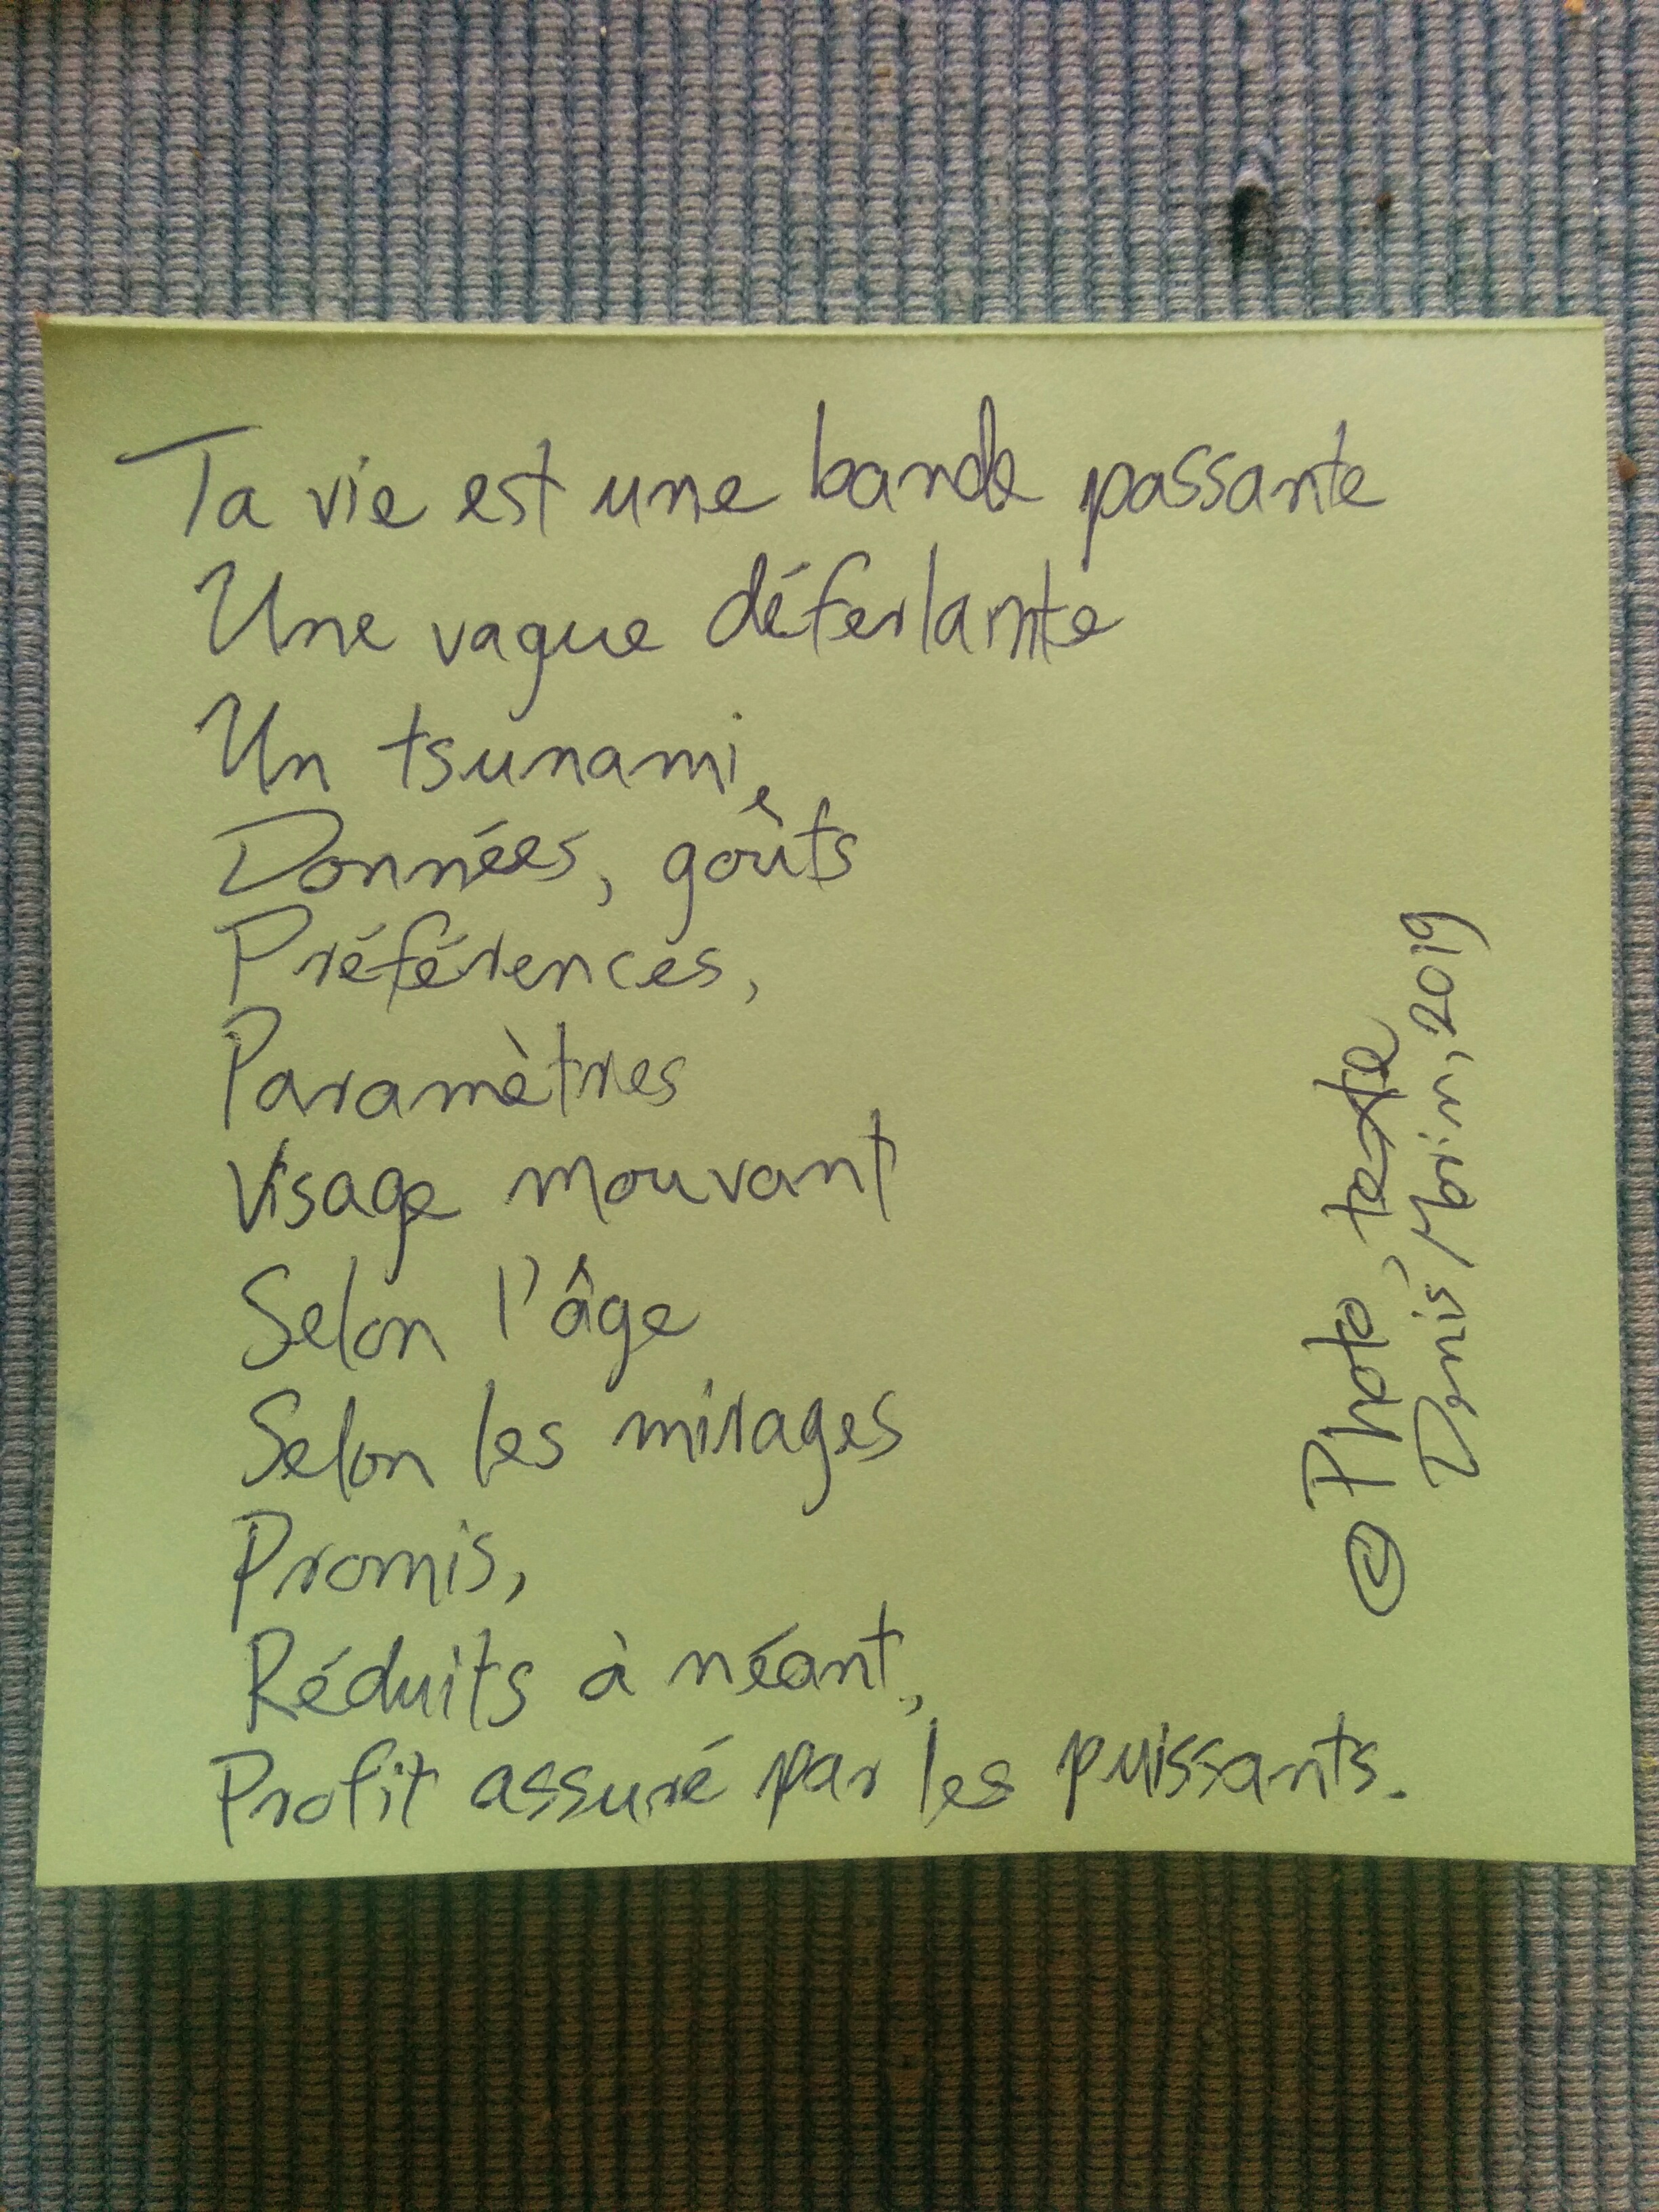 Ta vie est une bande passante
Une vague déferlante
Un tsunami,
Données, goûts
Préférences,
Paramètres
Visage mouvant
Selon l'âge
Selon les mirages
Promis,
Réduits à néant,
Profit assuré par les puissants.
© Photo, texte
Denis Morin, 2019